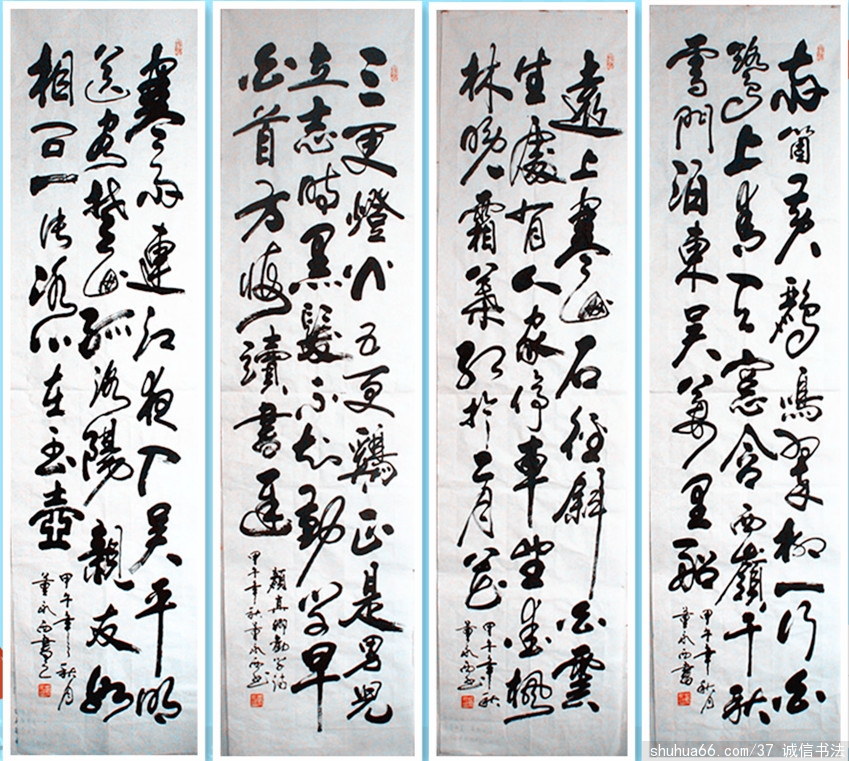 两箇黄鸝鳴翠柳一行白
鷺上青天窓含西嶺千秋
雪門泊東吴萬里船
甲午年秋月
董永西書
遠上寒山石徑斜白雲
生處有人家停車坐愛楓
林晚霜葉红於二月花
甲午年秋
董永西书
三更燈火五更鷄正是男兒
立志時黑髮不知勤学早
白首方悔讀書遲
顏真卿勸学詩
甲午年秋董永西书
寒雨連江夜入吴平明
送客楚山孤洛陽親友如
相问一片冰心在玉壺
甲午年之秋月
董永西書之
shuhua66.com/37 诚信书法